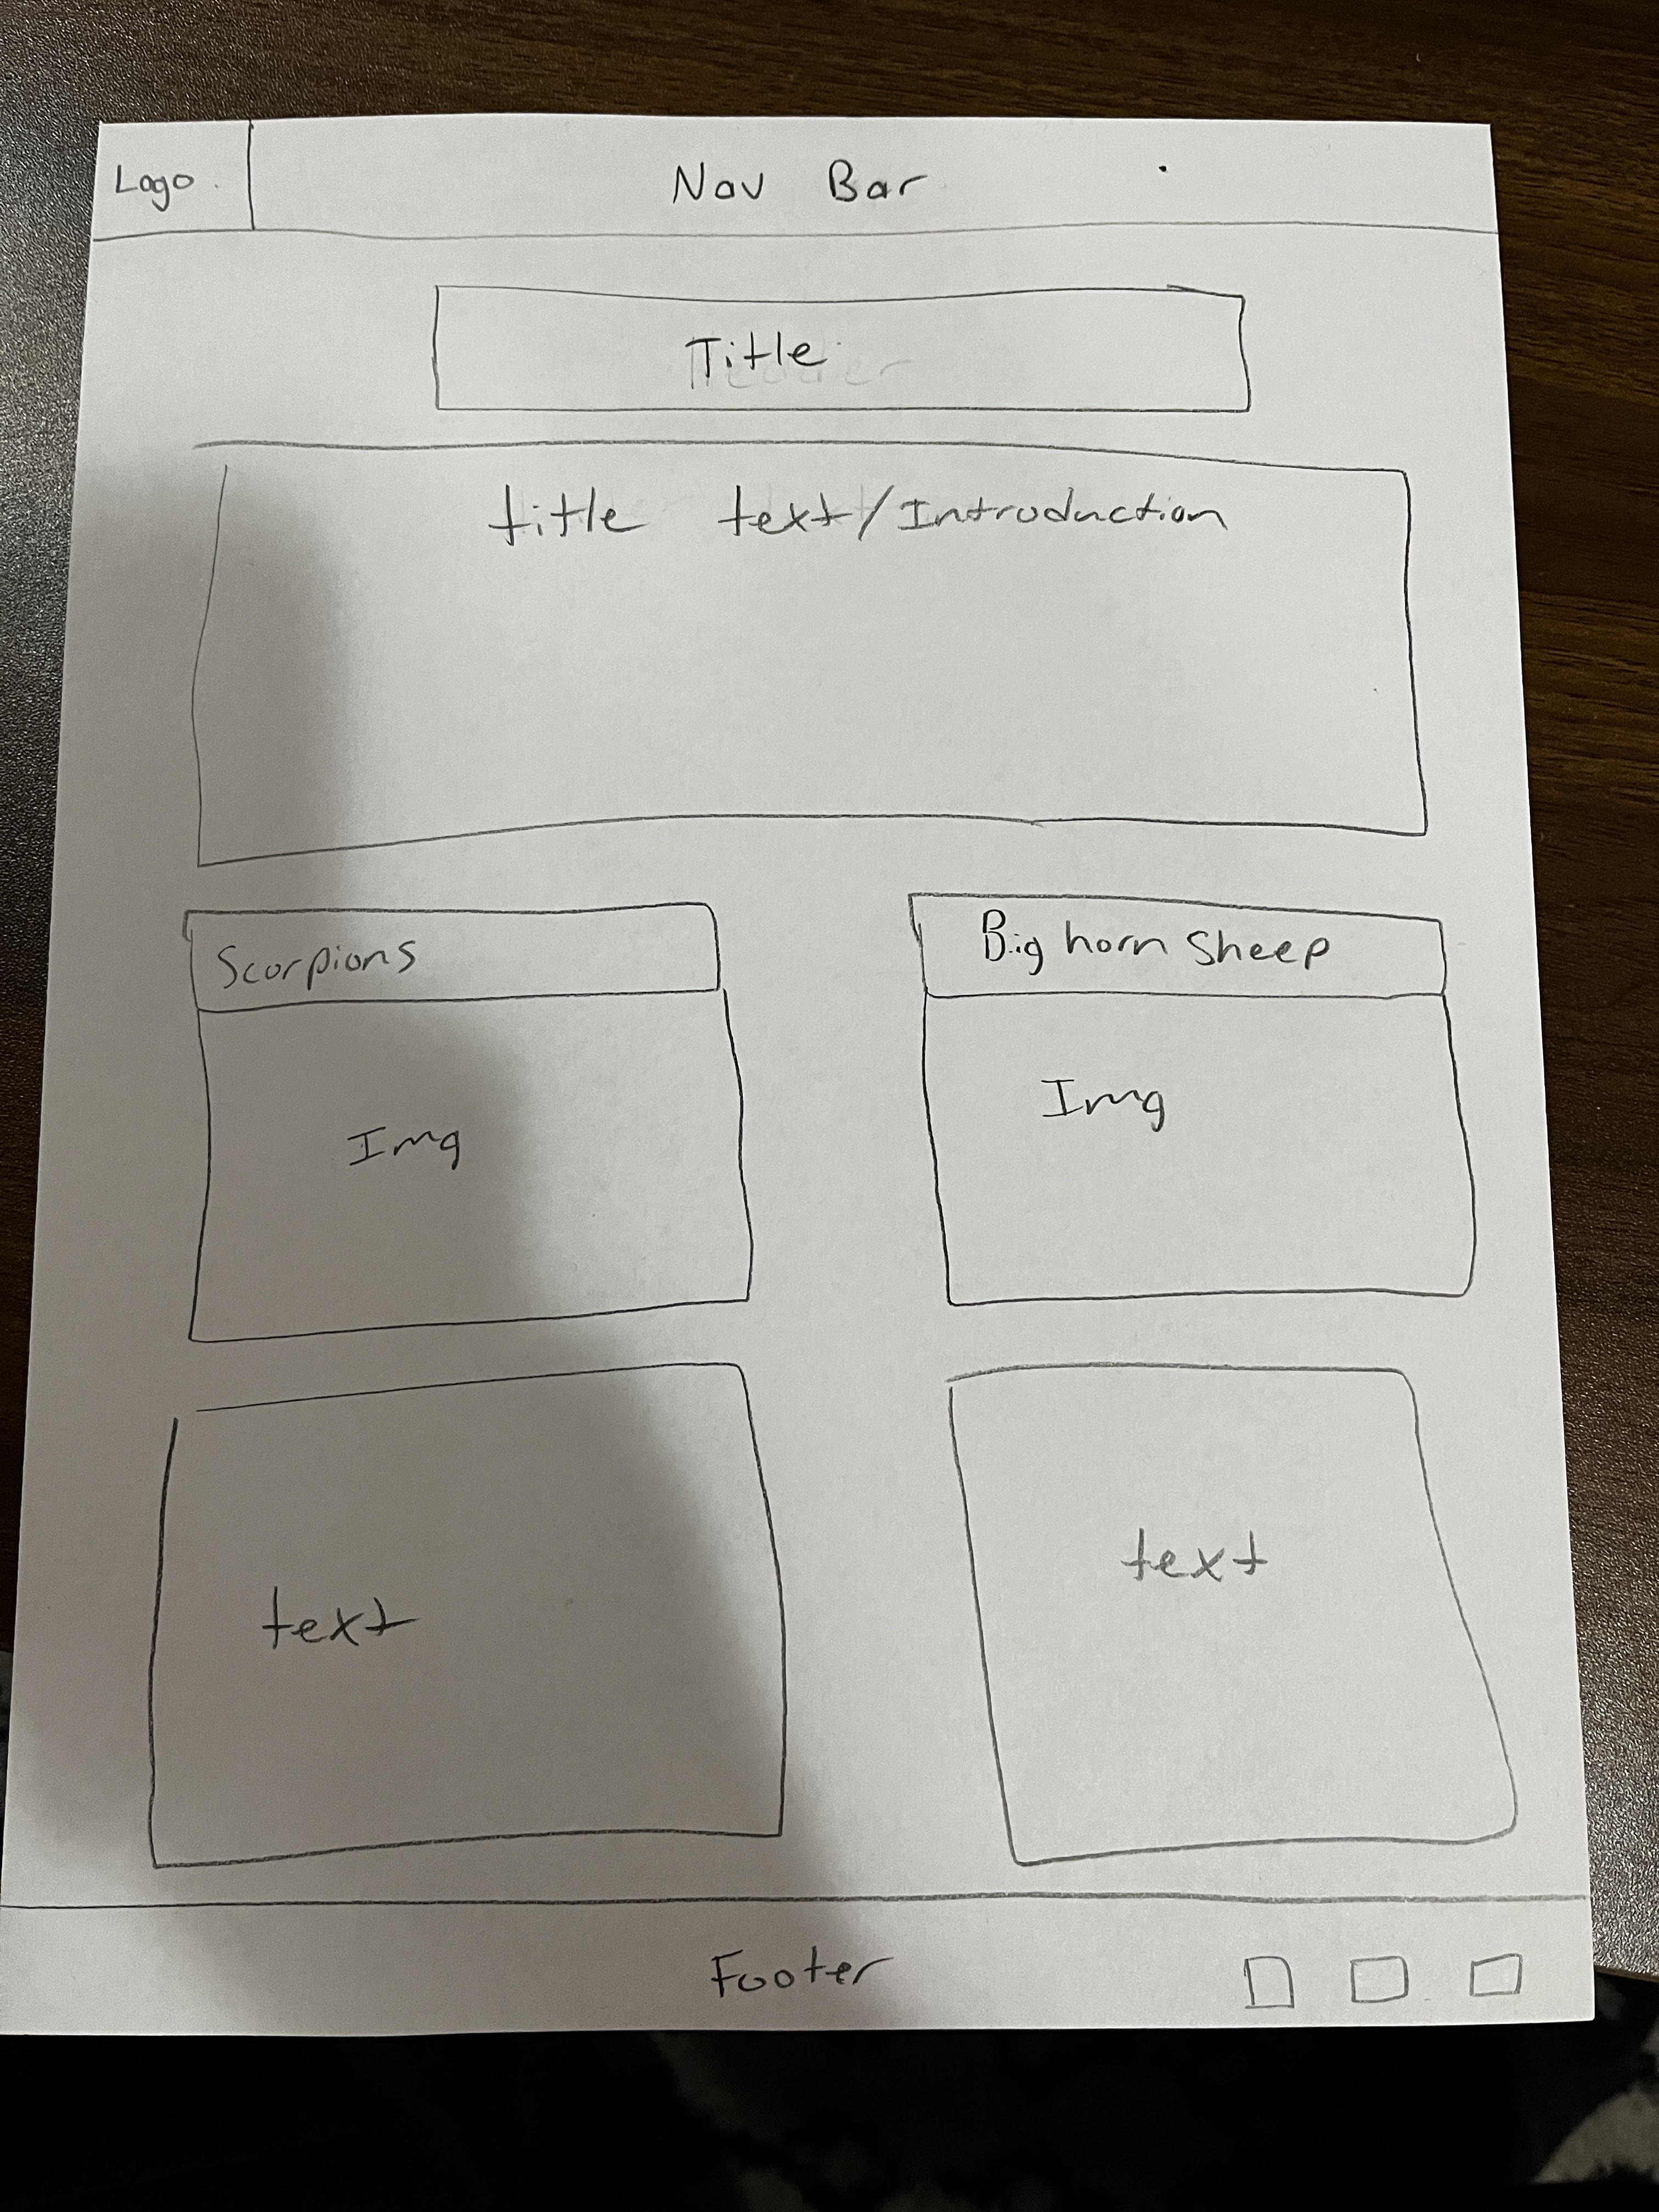 Logo
Nav Bar
Title
title text/Introduction
Scorpions
Big horn Sheep
Img
Img
text
text
Footer